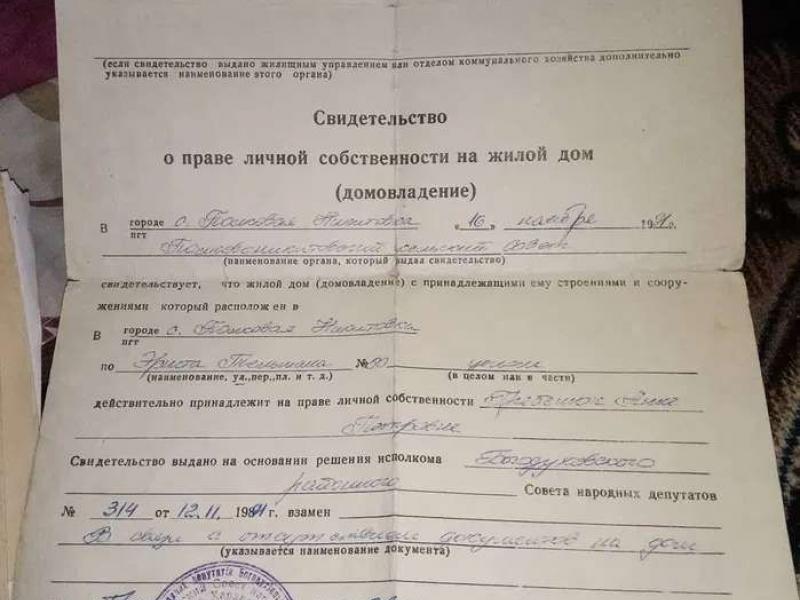 (если свидетельство выдано жилищным управлением или отделом коммунального хозяйства дополнительно
указывается наименование этого органа)
Свидетельство
о праве личной собственности на жилой дом
(домовладение)
В городе пгт с. Полковая Никитовка „16 ноября 1991г.
Полковоникитовский сельский Совет
(наименование органа, который выдал свидетельство)
свидетельствует, что жилой дом (домовладение) с принадлежащими ему строениями и соору-
жениями который расположен в
В городе пгт с. Полковая Никитовка
по Эрнста Тельмана № 90 целом
(наименование, ул.,пер.,пл. и т. д.) (в целом или в части)
действительно принадлежит на праве личной собственности Анне
Петровне
Свидетельство выдано на основании решения исполкома Богодуховского
районного Совета народных депутатов
№ 314 от 12.11. 1991 г. взамен
В связи с отсутствием документов на дом
(указывается наименование документа)